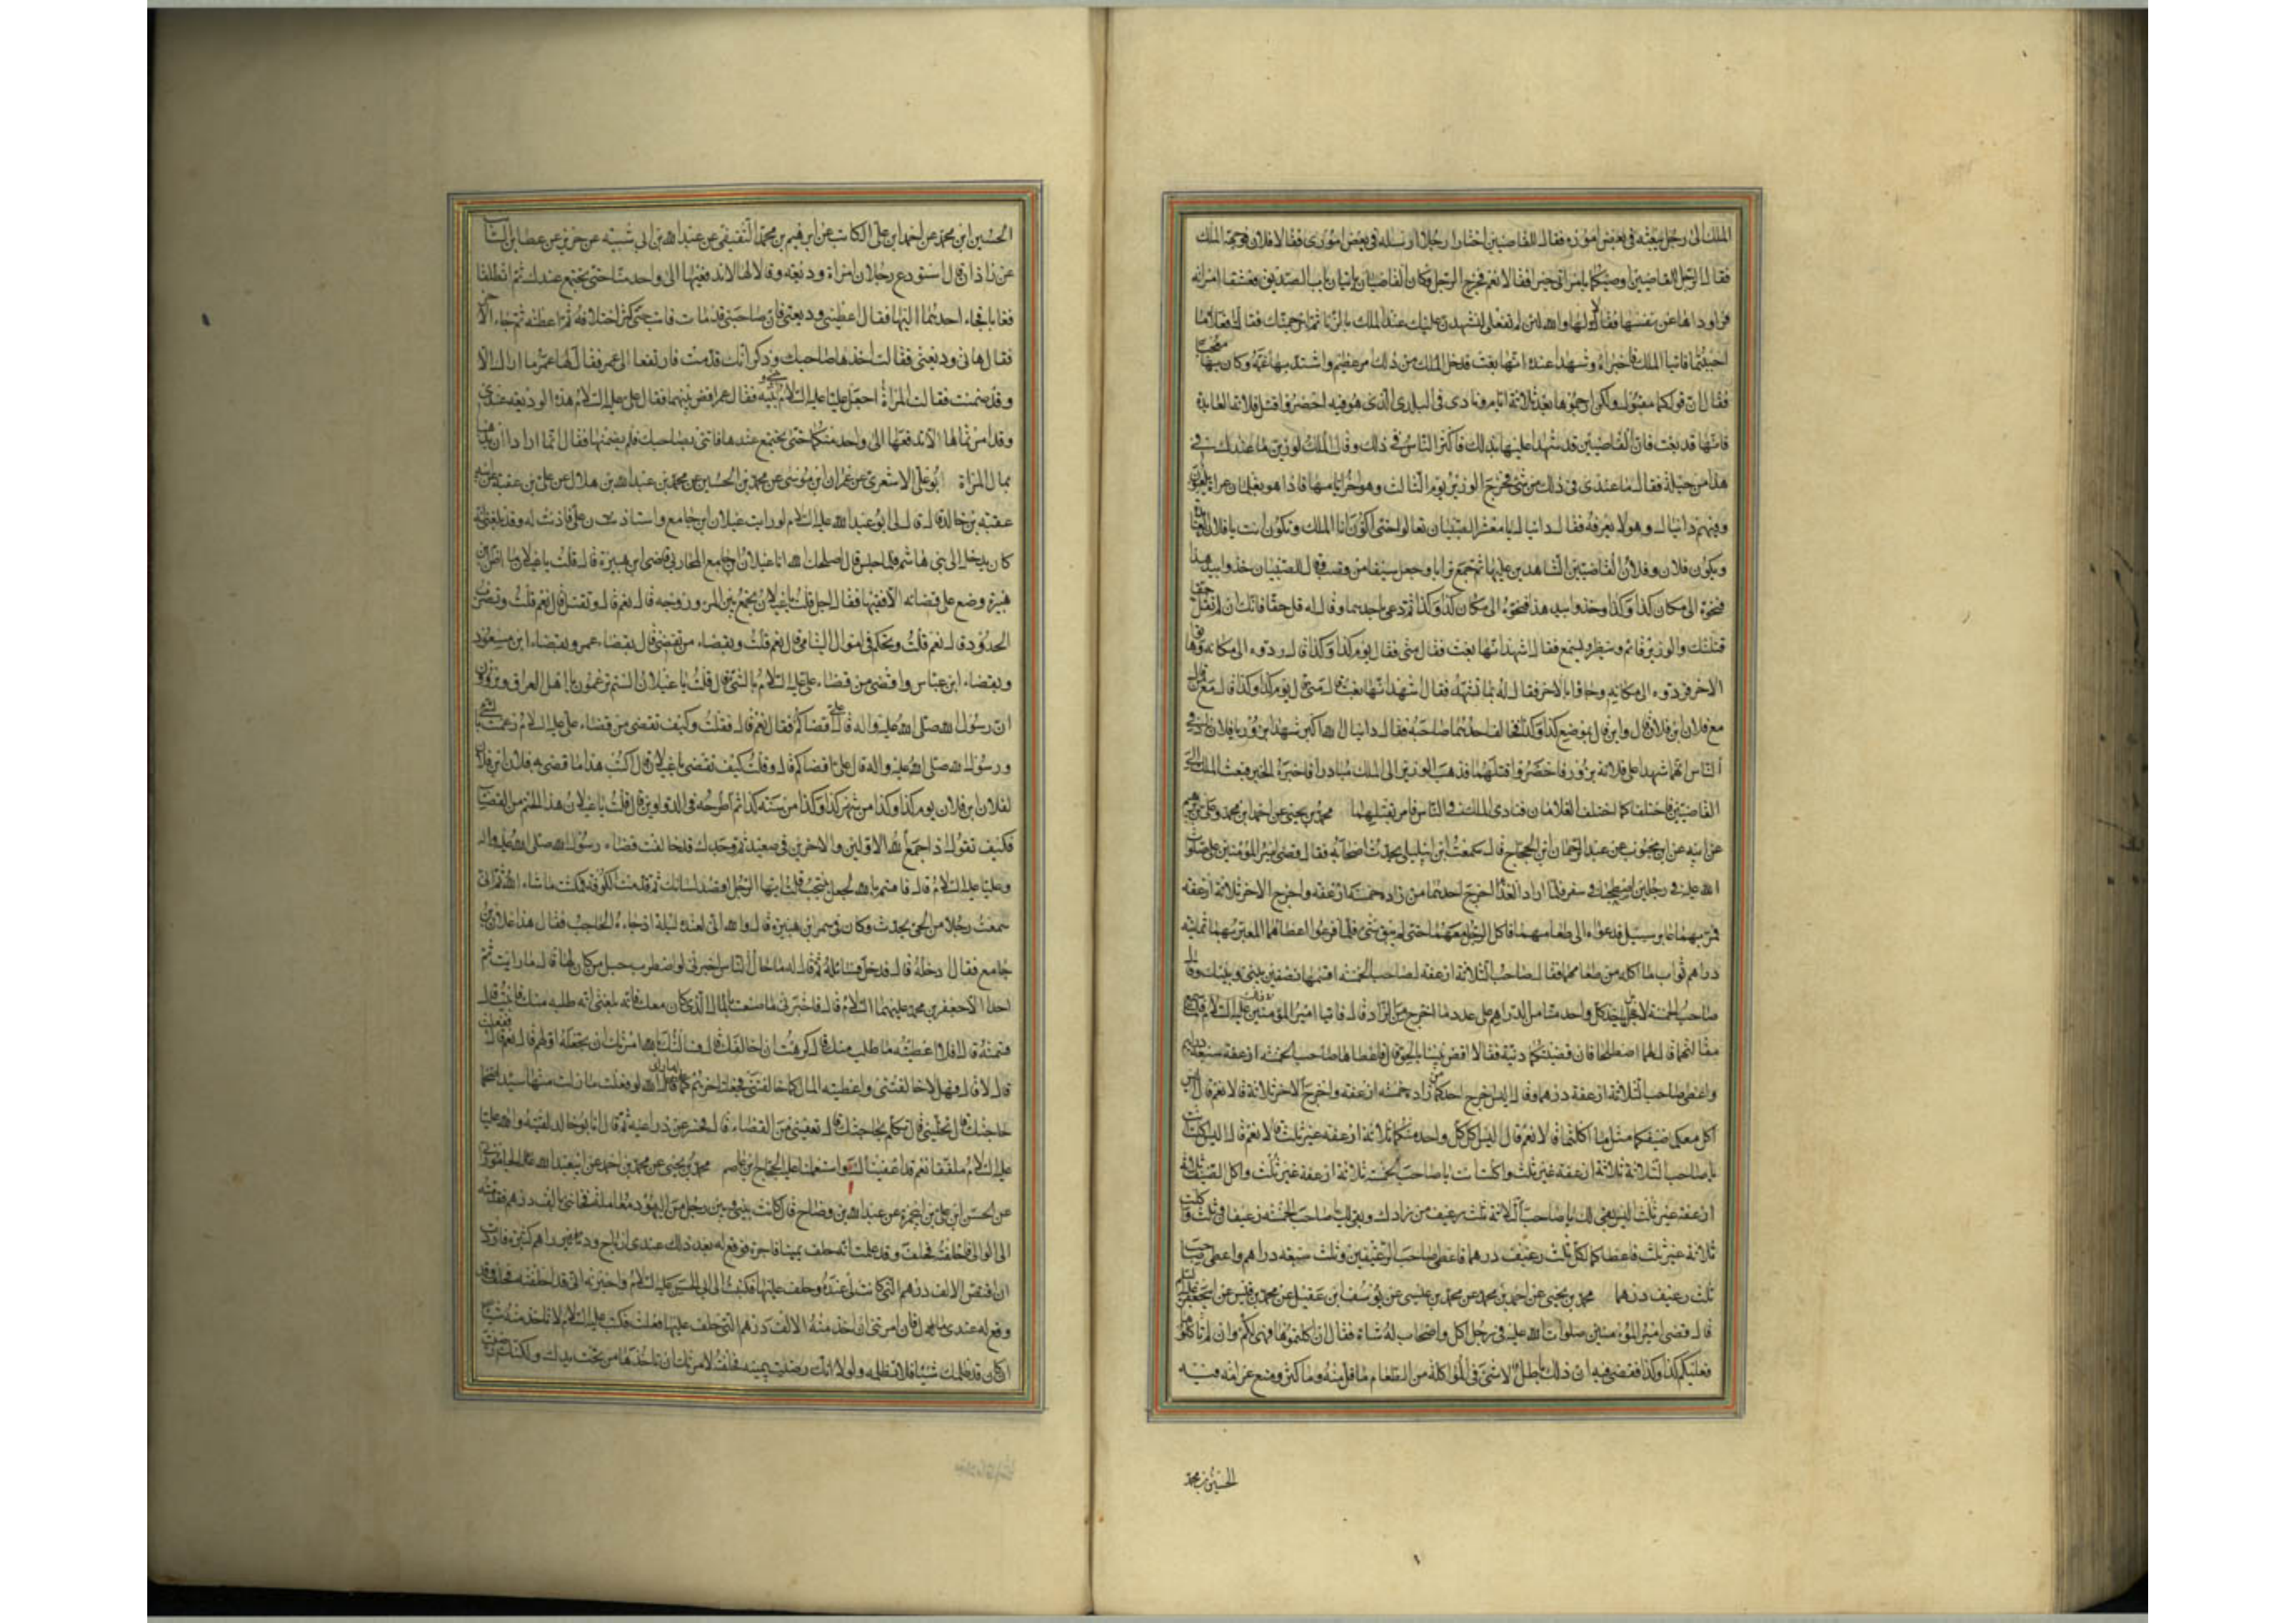 الملك الى رجل يبعثه في بعض اموره فقال للقاضيين اختارا رجلا ارسله في بعض اموري فقالا فلان فوجهه الملك
فقال الرجل للقاضيين اوصيكما بامراتي خيرا فقالا نعم فخرج الرجل وكان القاضيان ياتيان باب الصديق فعشقا امراته
فراوداها عن نفسها فابت فقالا لها والله لئن لم تفعلي لنشهدن عليك عند الملك بالزنا ثم لنرجمنك فقالت افعلا ما
احببتما فاتيا الملك فاخبراه وشهدا عنده انها بغت فدخل الملك من ذلك امر عظيم واشتد بها غمه وكان بها معجبا
فقال ان قولكما مقبول ولكن ارجموها بعد ثلاثة ايام ونادى في البلد الذي هو فيه احضروا قتل فلانة العابدة
فانها قد بغت فان القاضيين قد شهدا عليها بذلك فاكثر الناس في ذلك وقال الملك لوزيره ما عندك في
هذا من حيلة فقال ما عندي في ذلك من شيء فخرج الوزير يوم الثالث وهو اخر ايامها فاذا هو بغلمان عراة يلعبون
وفيهم دانيال وهو لا يعرفه فقال دانيال يا معشر الصبيان تعالوا حتى اكون انا الملك وتكون انت يا فلان العابدة
ويكون فلان وفلان القاضيين الشاهدين عليها ثم جمع ترابا وجعل سيفا من قصب وقال للصبيان خذوا بيد هذا
فنحوه الى مكان كذا وكذا وخذوا بيد هذا فنحوه الى مكان كذا وكذا ثم دعى باحدهما وقال له قل حقا فانك ان لم تقل حقا
قتلتك والوزير قائم ينظر ويسمع فقال اشهد انها بغت فقال متى فقال يوم كذا وكذا قال ردوه الى مكانه وهاتوا
الاخر فردوه الى مكانه وجاؤا بالاخر فقال له بما تشهد فقال اشهد انها بغت قال متى قال يوم كذا وكذا قال مع من قال
مع فلان ابن فلان قال واين قال بموضع كذا وكذا فخالف احدهما صاحبه فقال دانيال الله اكبر شهدا بزور يا فلان ناد في
الناس انهما شهدا على فلانة بزور فاحضروا قتلهما فذهب الوزير الى الملك مبادرا فاخبره الخبر فبعث الملك الى
القاضيين فاختلفا كما اختلف الغلامان فنادى الملك في الناس وامر بقتلهما محمد بن يحيى عن احمد ابن محمد وعلي بن ابرهيم
عن ابيه عن ابن محبوب عن عبد الرحمان ابن الحجاج قال سمعت ابن ابي ليلى يحدث اصحابه فقال قضى امير المؤمنين علي صلوات
الله عليه في رجلين اصطحبا في سفر فلما ارادا الغداء اخرج احدهما من زاده خمسة ارغفة واخرج الاخر ثلاثة ارغفة
فمر بهما عابر سبيل فدعواه الى طعامهما فاكل الرجل معهما حتى لم يبق شيء فلما فرغوا اعطاهما المعتر بهما ثمانية
دراهم ثواب ما اكله من طعامهما فقال صاحب الثلاثة ارغفة لصاحب الخمسة اقسمها نصفين بيني وبينك وقال
صاحب الخمسة لا بل ياخذ كل واحد منا من الدراهم على عدد ما اخرج من الزاد قال فاتيا امير المؤمنين عليه السلام في ذلك فلما سمع
مقالتهما قال لهما اصطلحا فان قضيتكما دنية فقالا اقض بيننا بالحق قال فاعطا صاحب الخمسة ارغفة سبعة دراهم
واعطى صاحب الثلاثة ارغفة درهما وقال اليس اخرج احدكما من زاده خمسة ارغفة واخرج الاخر ثلاثة قالا نعم قال اليس
اكل معكما ضيفكما مثل ما اكلتما قالا نعم قال اليس اكل كل واحد منكما ثلاثة ارغفة غير ثلث قالا نعم قال اليس اكلت انت
يا صاحب الثلاثة ثلاثة ارغفة غير ثلث واكلت انت يا صاحب الخمسة ثلاثة ارغفة غير ثلث واكل الضيف ثلاثة
ارغفة غير ثلث اليس بقي لك يا صاحب الثلاثة ثلث رغيف من زادك وبقي لك يا صاحب الخمسة رغيفان وثلث واكلت
ثلاثة غير ثلث فاعطاكما لكل ثلث رغيف درهما فاعطى صاحب الرغيفين وثلث سبعة دراهم واعطى صاحب
ثلث رغيف درهما محمد بن يحيى عن احمد بن محمد عن محمد بن عيسى عن يوسف ابن عقيل عن محمد بن قيس عن ابي جعفر عليه السلم
قال قضى امير المؤمنين صلوات الله عليه في رجل اكل واصحاب له شاة فقال ان اكلتموها فهي لكم وان لم تاكلوها
فعليكم كذا وكذا فقضى فيه ان ذلك باطل لا شيء في المؤاكلة من الطعام ما قل منه وما كثر ومنع غرامته فيه
الحسين بن محمد
الحسين ابن محمد عن احمد ابن علي الكاتب عن ابرهيم بن محمد الثقفي عن عبد الله بن ابي شيبه عن حريز عن عطا ابن السائب
عن زاذان قال استودع رجلان امراة وديعة وقالا لها لا تدفعيها الى واحد منا حتى نجتمع عندك ثم انطلقا
فغابا فجاء احدهما اليها فقال اعطيني وديعتي فان صاحبي قد مات فابت حتى كثر اختلافه ثم اعطته ثم جاء الاخر
فقال هاتي وديعتي فقالت اخذها صاحبك وذكر انك قد مت فارتفعا الى عمر فقال لها عمر ما اراك الا
وقد ضمنت فقالت المراة اجعل عليا عليه السلام بيني وبينه فقال عمر اقض بينهما فقال علي عليه السلام هذه الوديعة عندي
وقد امرتماها الا تدفعها الى واحد منكما حتى تجتمعا عندها فائتني بصاحبك فلم يضمنها فقال انما ارادا ان يذهبا
بمال المراة ابو علي الاشعري عن عمران ابن موسى عن محمد بن الحسين عن محمد بن عبد الله بن هلال عن علي بن عقبة عن ابيه
عقبة بن خالد قال قال لي ابو عبد الله عليه السلام لو رايت غيلان ابن جامع واستاذن علي فاذنت له وقد بلغني انه
كان يدخل الى بني هاشم فلما جلس قال اصلحك الله انا غيلان ابن جامع المحاربي قاضي ابن هبيرة قال قلت يا غيلان ما اظن ابن
هبيرة وضع على قضائه الا فقيها فقال اجل قلت يا غيلان تجمع بين المرء وزوجه قال نعم قال وتقتل قال نعم قلت وتضرب
الحدود قال نعم قلت وتحكم في اموال اليتامى قال نعم قلت وبقضاء من تقضي قال بقضاء عمر وبقضاء ابن مسعود
وبقضاء ابن عباس واقضي من قضاء علي عليه السلام بالشيء قال قلت يا غيلان الستم تزعمون يا اهل العراق وتروون
ان رسول الله صلى الله عليه واله قال علي اقضاكم فقال نعم قال فقلت وكيف تقضي من قضاء علي عليه السلام زعمت بالشيء
ورسول الله صلى الله عليه واله قال علي اقضاكم قال وقلت كيف تقضي يا غيلان قال اكتب هذا ما قضى به فلان ابن فلان
لفلان ابن فلان يوم كذا وكذا من شهر كذا وكذا من سنة كذا ثم اطرحه في الدواوين قال قلت يا غيلان هذا الحتم من القضاء
فكيف تقول اذا جمع الله الاولين والاخرين في صعيد ثم وجدك قد خالفت قضاء رسول الله صلى الله عليه واله
وعليا عليه السلام قال فاقسم بالله لجعل ينتحب قلت ايها الرجل اقصد لسانك ثم قدمت الكوفة فمكثت ما شاء الله ثم اني
سمعت رجلا من الحي يحدث وكان في سمر ابن هبيرة قال والله اني لعنده ليلة اذ جاءه الحاجب فقال هذا غيلان بن
جامع فقال ادخله قال فدخل فسائله ثم قال له ما حال الناس اخبرني لو اضطرب حبل من كان لها قال ما رايت ثم
احدا الا جعفر بن محمد عليهما السلام قال فاخبرني ما صنعت بالمال الذي كان معك فانه بلغني انه طلبه منك فابيت قال
قسمته قال افلا اعطيته ما طلب منك قال كرهت ان اخالفك قال فسالتك بالله امرتك ان تجعله اولهم قال نعم قال ففعلت
قال لا قال فهلا خالفتني واعطيته المال كما خالفتني فجعلته اخرهم اما والله لو فعلت ما زلت منها سيدا ضخما
حاجتك قال تخليني قال تكلم بحاجتك قال تعفيني من القضاء قال فحسر عن ذراعيه ثم قال انا ابو خالد لقيته والله عليا
عليه السلام ملففا نعم قد اعفيناك واستعملنا عليه الحجاج ابن عاصم محمد بن يحيى عن محمد بن احمد عن ابي عبد الله الجاموراني
عن الحسن ابن علي بن ابي حمزة عن عبد الله بن وضاح قال كانت بيني وبين رجل من اليهود معاملة فخانني بالف درهم فقدمته
الى الوالي فاحلفته فحلف وقد علمت انه حلف يمينا فاجرة فوقع له بعد ذلك عندي ارباح ودراهم كثيرة فاردت
ان اقتص الالف درهم التي كانت لي عنده وحلف عليها فكتبت الى ابي الحسن عليه السلام واخبرته اني قد احلفته فحلف وقد
وقع له عندي مال فان امرتني ان اخذ منه الالف درهم التي حلف عليها فعلت فكتب عليه السلام لا تاخذ منه شيئا
ان كان قد ظلمك شيئا فلا تظلمه ولولا انك رضيت بيمينه فحلفته لامرتك ان تاخذها من تحت يدك ولكنك رضيت